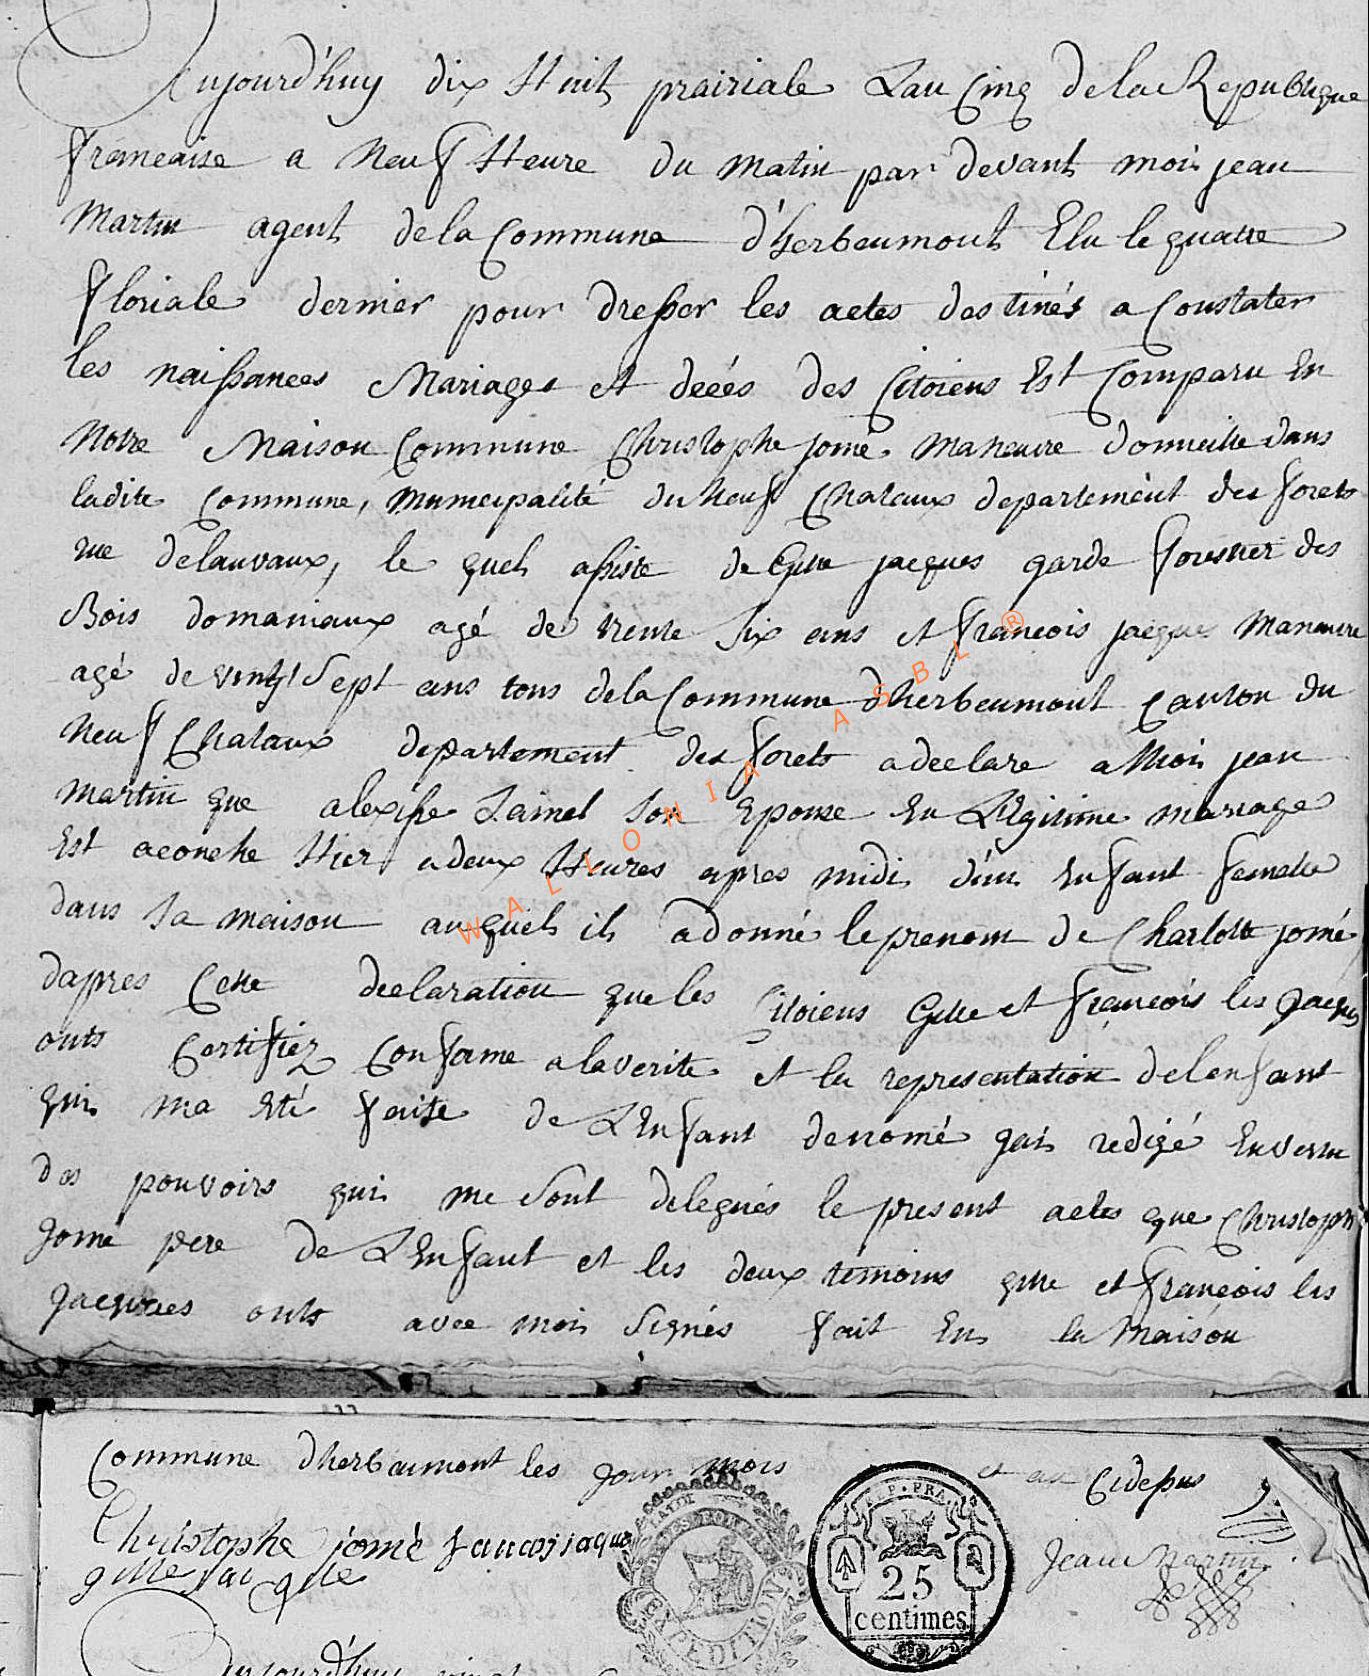 Aujourd'huy dix Huit prairiale Lan Cinq dela Republique
francaise a Neuf Heure du Matin par devant moi jean
Martin agent dela Commune d'herbeumont Elu le quatre
floriale dernier pour dresser les actes destinés a Constater
les naissances Mariages et décés des Citoiens Est Comparu En
Notre Maison Commune Christophe jomé Maneuvre domicilie dans
ladite Commune, Municipalité du Neuf Chataux departement des forets
rue delauvaux, le quel assiste de Gille jacques garde forestier des
Bois domaniaux agé de trente Six ans et francois jacques Maneuvre
agé de vingt Sept ans tous dela Commune d'herbeumont Canton du
Neuf Chataux departement des forets a declare a Moi jean
Martin que Son Epouse En Légitime mariage
Est acouche Hier a deux Heures apres midi d'un Enfant femelle
dans Sa maison auquel il a donné le prenom de Charlotte jomé
dapres Cette declaration que les Citoiens Gille et francois les Jacques
onts Certifiez Conforme a la verite et la representation delenfant
qui ma Eté faite de LEnfant denomé jai redigé En vertu
des pouvoirs qui me Sont delegués le present actes que Christophe
Jomé pere de LEnfant et les deux temoins gille et francois les
Jacques onts avec moi Signés fait En la Maison
Commune dherbeumont les jour mois et an Cidessus
Christophe jomé francois jaque
gille jacque
Jean Martin
REP. FRA.
25
centimes
EXPEDITION
Aujourd'huy vingt
WALLONIA ASBL ®